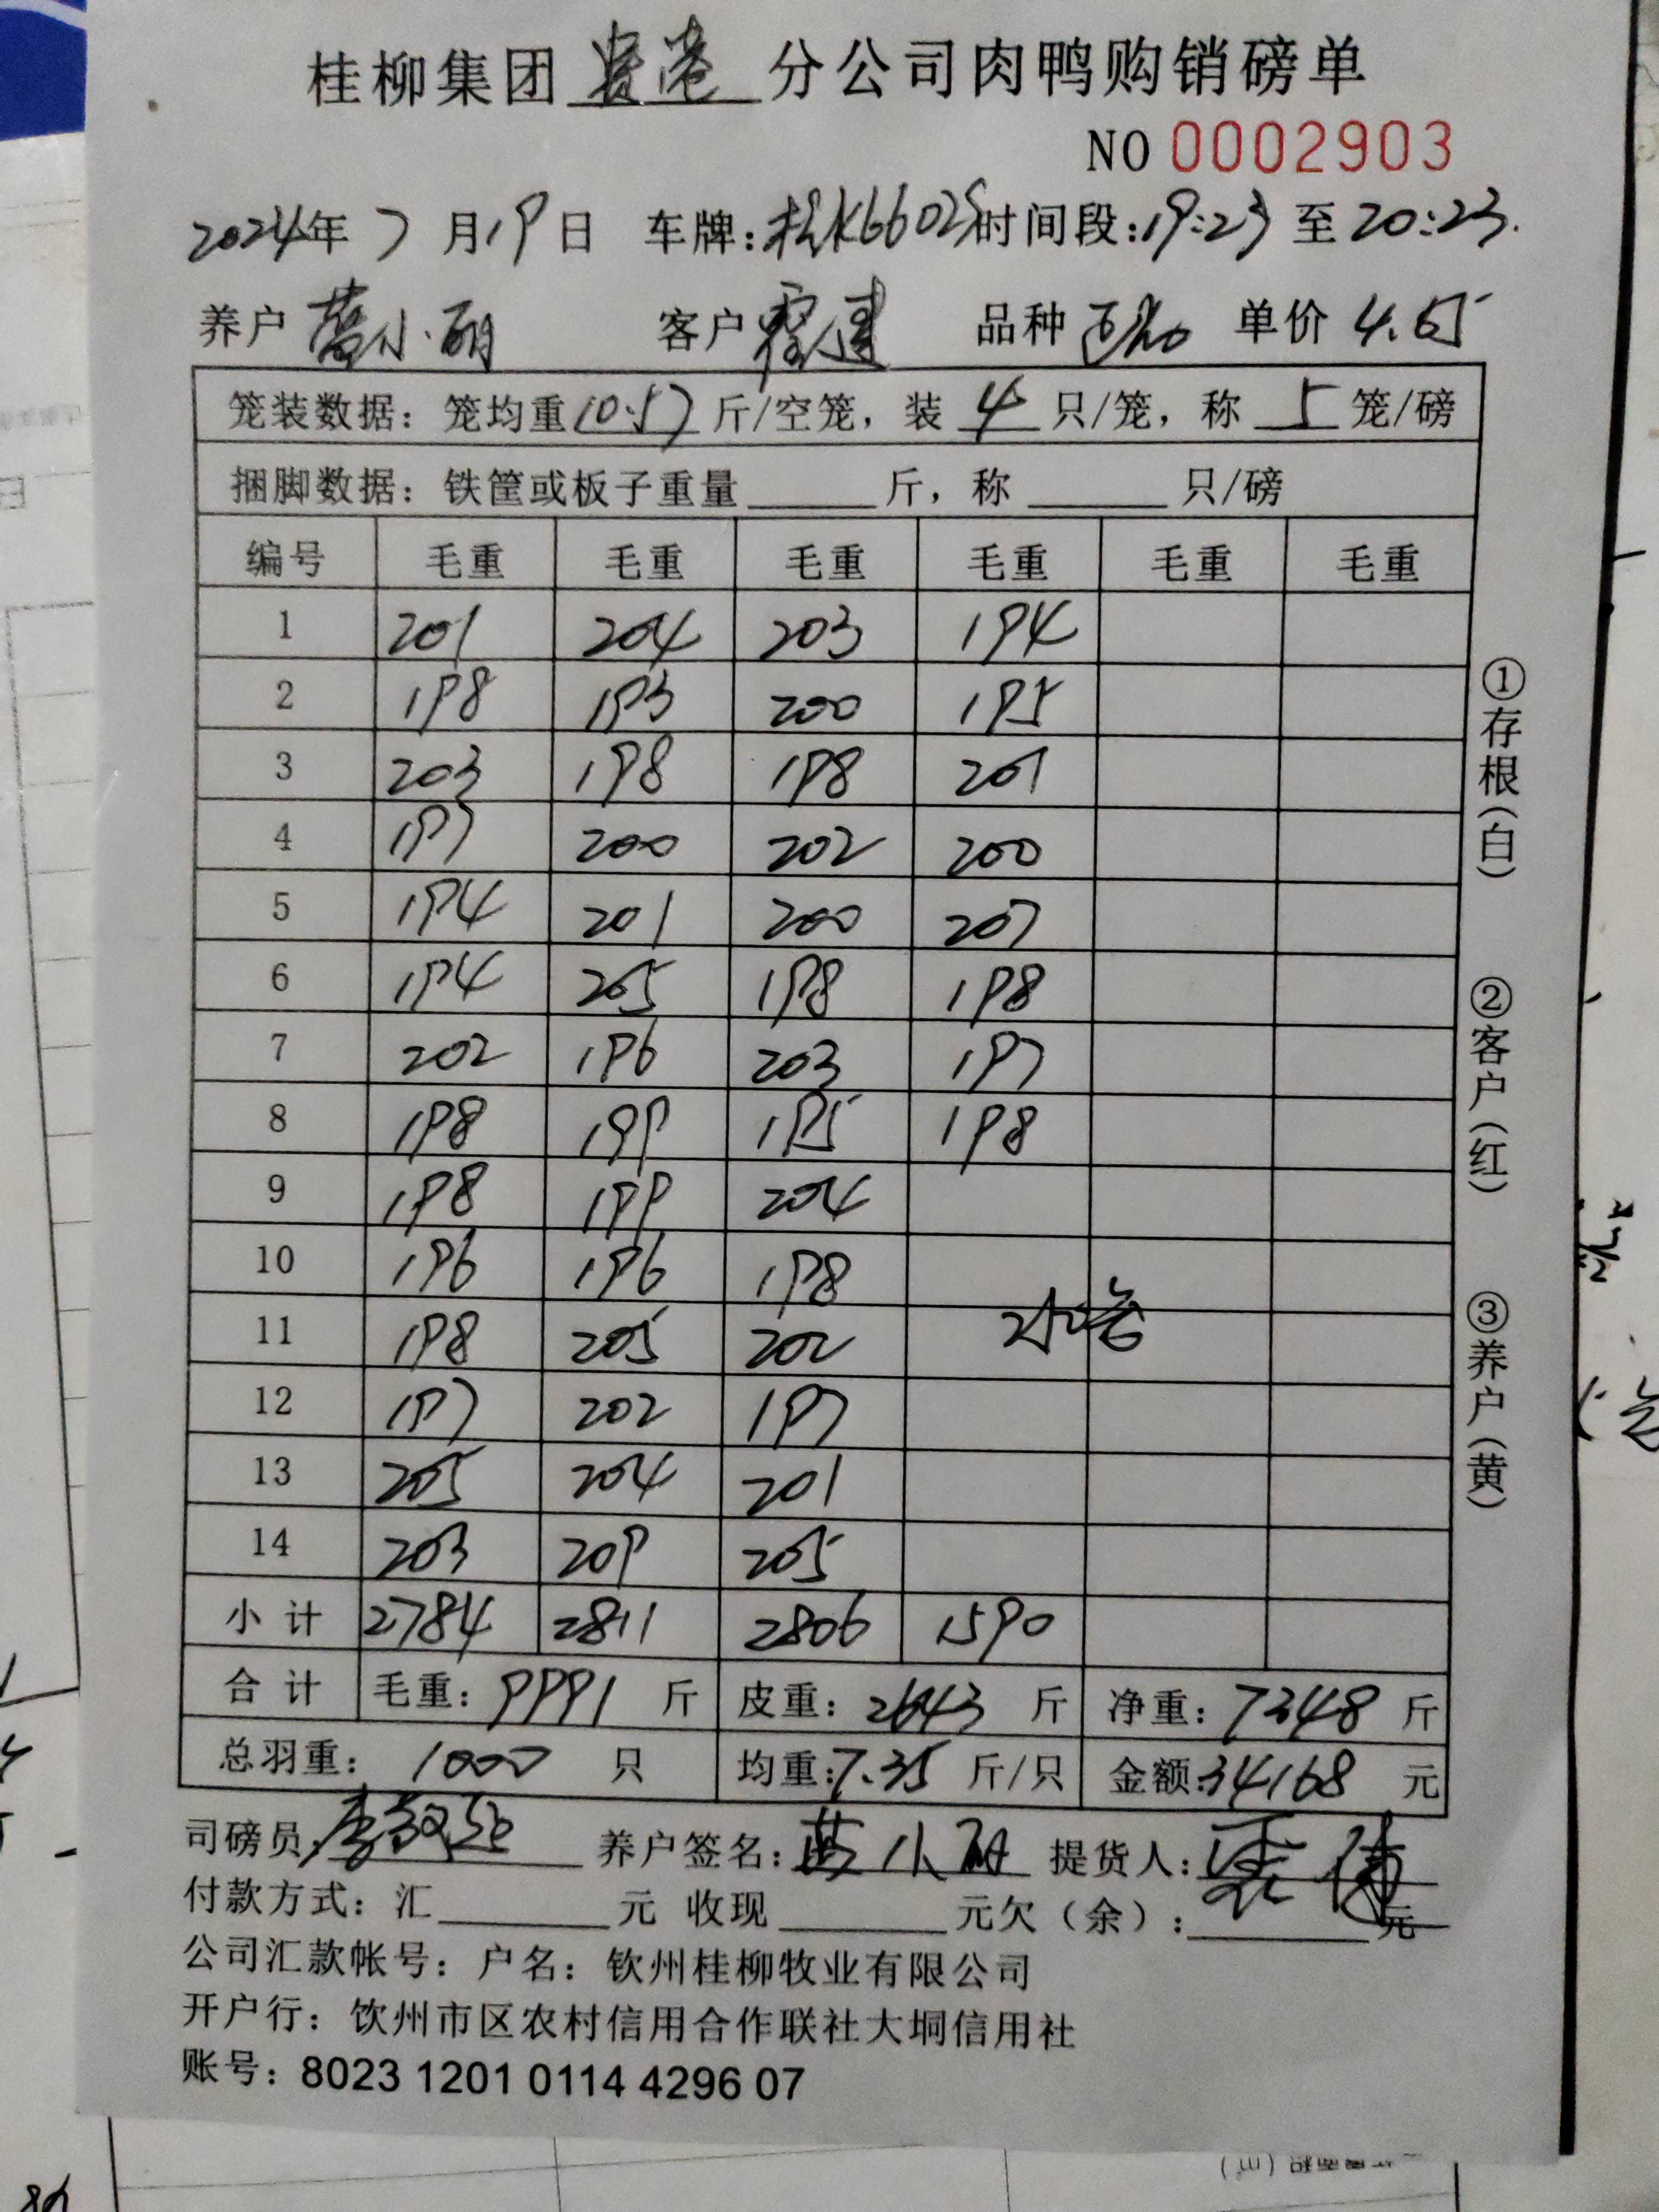 桂柳集团 贵港 分公司肉鸭购销磅单
NO 0002903
2024年 7 月19日 车牌:桂K66025 时间段:19:23 至 20:23.
养户 小丽 客户 品种 单价 4.65
笼装数据: 笼均重 10.57 斤/空笼, 装 4 只/笼, 称 5 笼/磅
捆脚数据: 铁筐或板子重量 斤, 称 只/磅
编号 毛重 毛重 毛重 毛重 毛重 毛重
1 201 204 203 194
2 198 193 200 195
3 203 198 198 201
4 197 200 202 200
5 194 201 200 207
6 194 205 198 198
7 202 196 203 197
8 198 199 195 198
9 198 199 204
10 196 196 198
11 198 205 202
12 197 202 197
13 205 204 201
14 203 209 205
小计 2784 2811 2806 1590
合计 毛重: 9991 斤 皮重: 2643 斤 净重: 7348 斤
总羽重: 1000 只 均重: 7.35 斤/只 金额: 34168 元
司磅员: 养户签名: 小丽 提货人:
付款方式: 汇 元 收现 元欠(余): 元
公司汇款帐号: 户名: 钦州桂柳牧业有限公司
开户行: 饮州市区农村信用合作联社大垌信用社
账号: 8023 1201 0114 4296 07
①存根(白)
②客户(红)
③养户(黄)